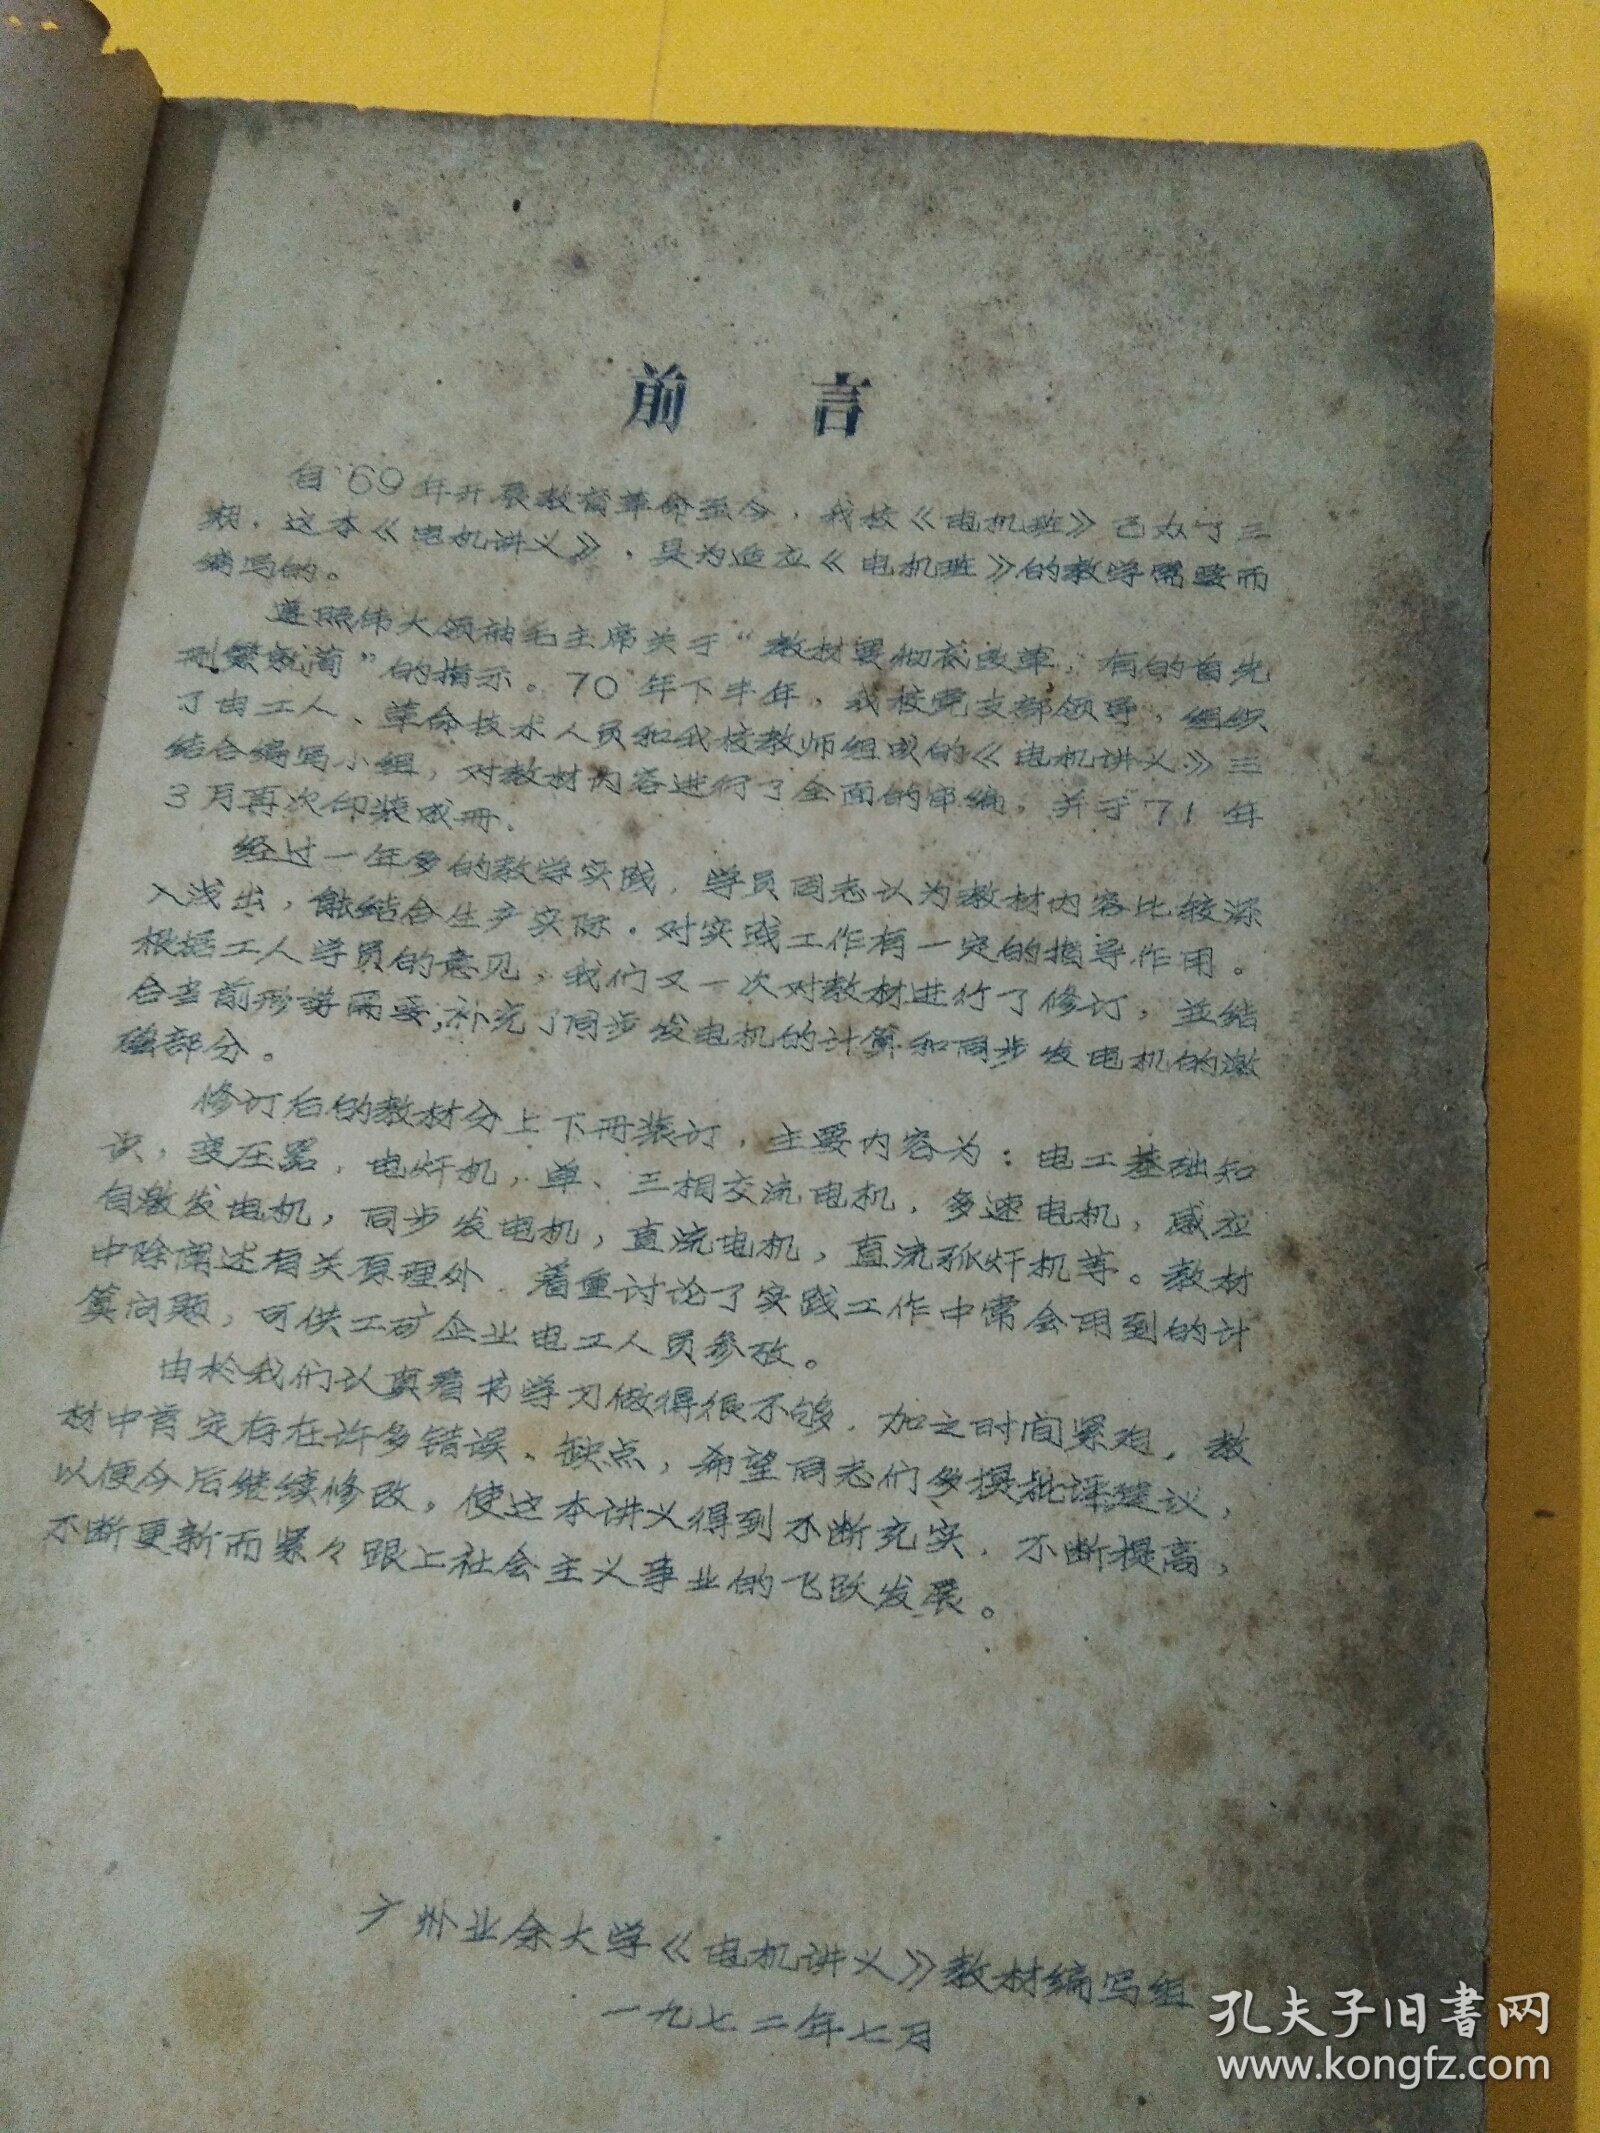 前 言
自'69年开展教育革命至今，我校《电机班》已办了三
期。这本《电机讲义》，是为适应《电机班》的教学需要而
编写的。
遵照伟大领袖毛主席关于“教材要彻底改革，有的首先
删繁就简”的指示。70年下半年，我校党支部领导，组织
了由工人、革命技术人员和我校教师组成的《电机讲义》三
结合编写小组，对教材内容进行了全面的审编。并于71年
3月再次印装成册。
经过一年多的教学实践，学员同志认为教材内容比较深
入浅出，能结合生产实际。对实践工作有一定的指导作用。
根据工人学员的意见，我们又一次对教材进行了修订，並结
合当前形势需要，补充了同步发电机的计算和同步发电机的激
磁部分。
修订后的教材分上下册装订，主要内容为：电工基础知
识，变压器，电焊机，单、三相交流电机，多速电机，感应
自激发电机，同步发电机，直流电机，直流弧焊机等。教材
中除阐述有关原理外，着重讨论了实践工作中常会用到的计
算问题，可供工矿企业电工人员参考。
由於我们认真看书学习做得很不够，加之时间紧迫，教
材中肯定存在许多错误、缺点，希望同志们多提批评建议，
以便今后继续修改，使这本讲义得到不断充实，不断提高，
不断更新而紧々跟上社会主义事业的飞跃发展。
广州业余大学《电机讲义》教材编写组
一九七二年七月
孔夫子旧書网
www.kongfz.com